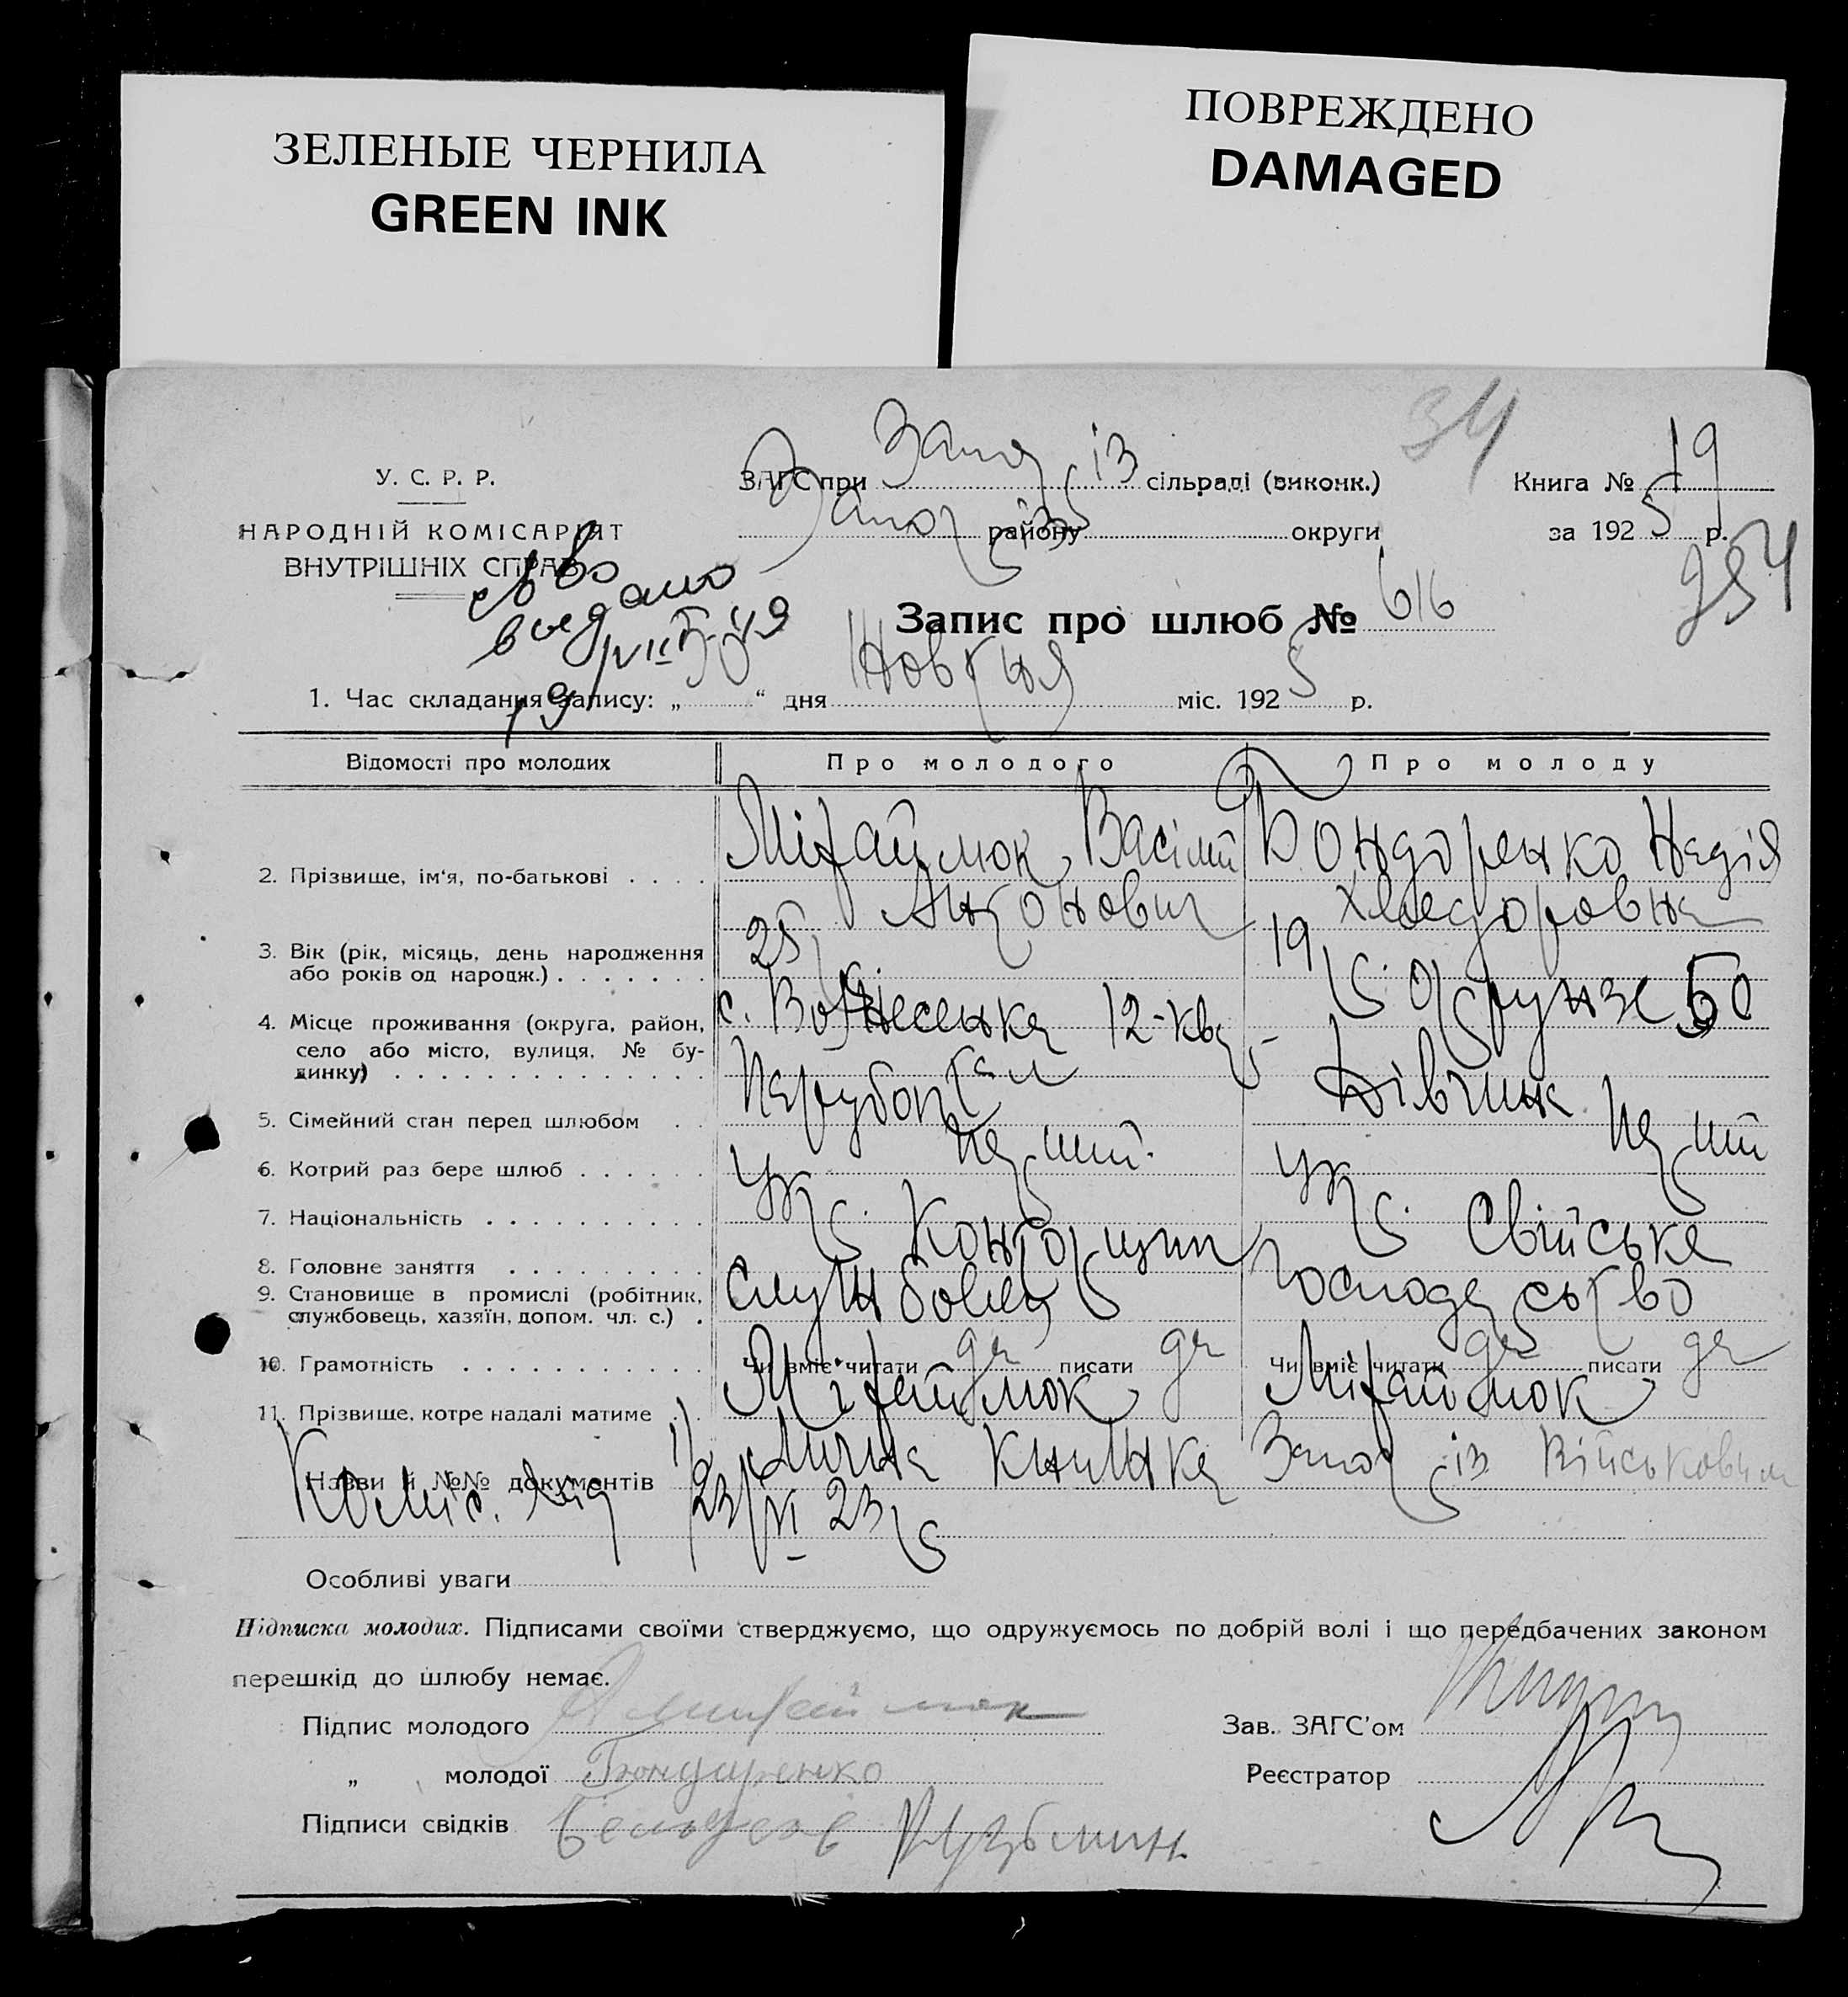 ЗЕЛЕНЫЕ ЧЕРНИЛА
GREEN INK
ПОВРЕЖДЕНО
DAMAGED
34
У. С. Р. Р.
НАРОДНІЙ КОМІСАРІЯТ
ВНУТРІШНІХ СПРАВ
ЗАГС при Запоріз сільраді (виконк.)
Запоріз району округи
Книга № 19
за 1925 р.
354
Запис про шлюб № 616
1. Час складання запису: „ “ дня Жовтня міс. 1925 р.
Відомості про молодих Про молодого Про молоду
2. Прізвище, ім‘я, по-батькові Міхаймок Васіль Антонович Бондаренко Надія Хведоровна
3. Вік (рік, місяць, день народження або років од народж.) 25 р. 19 р.
4. Місце проживання (округа, район, село або місто, вулиця, № будинку) с. Вознесенка 12-квар Фрунзе 50
5. Сімейний стан перед шлюбом Парубок Дівчина
6. Котрий раз бере шлюб перший перший
7. Національність Укр. Укр.
8. Головне заняття Конторщик Свійське
9. Становище в промислі (робітник, службовець, хазяїн, допом. чл. с.) Службовец господарство
10. Грамотність Чи вміє читати да писати да Чи вміє читати да писати да
11. Прізвище, котре надалі матиме Міхаймок Міхаймок
Назви й №№ документів 1) Лична книжка Запоріз Військовим
Коміс. від 23/VI 23 р
Особливі уваги
Підписка молодих. Підписами своїми стверджуємо, що одружуємось по добрій волі і що передбачених законом
перешкід до шлюбу немає.
Підпис молодого Зав. ЗАГС’ом
„ молодої Бондаренко Реєстратор
Підписи свідків Кузьмин